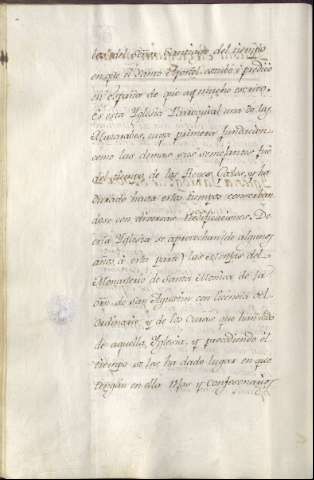 del tiempo
en que el Santo Apostol estubo y predicò
en España de que ay mucho escrito.
Es esta Yglesia Parroquial una de las
Muzarabes, cuya primera fundacion
como las demas sus semejantes fue
del tiempo de los Reyes Godos, y ha
durado hasta estos tiempos conservan
dose con diversas Redificaciones. De
esta Yglesia se aprovechan (de algunos
años à esta parte) las del
Monasterio de Santa Monica de la
orn. de San Agustin con licencia del
ordinario, y de los Curas que han sido
de aquella Yglesia, y procediendo el
tiempo se les ha dado lugar en que
tengan en ella Misas y Confesonarios